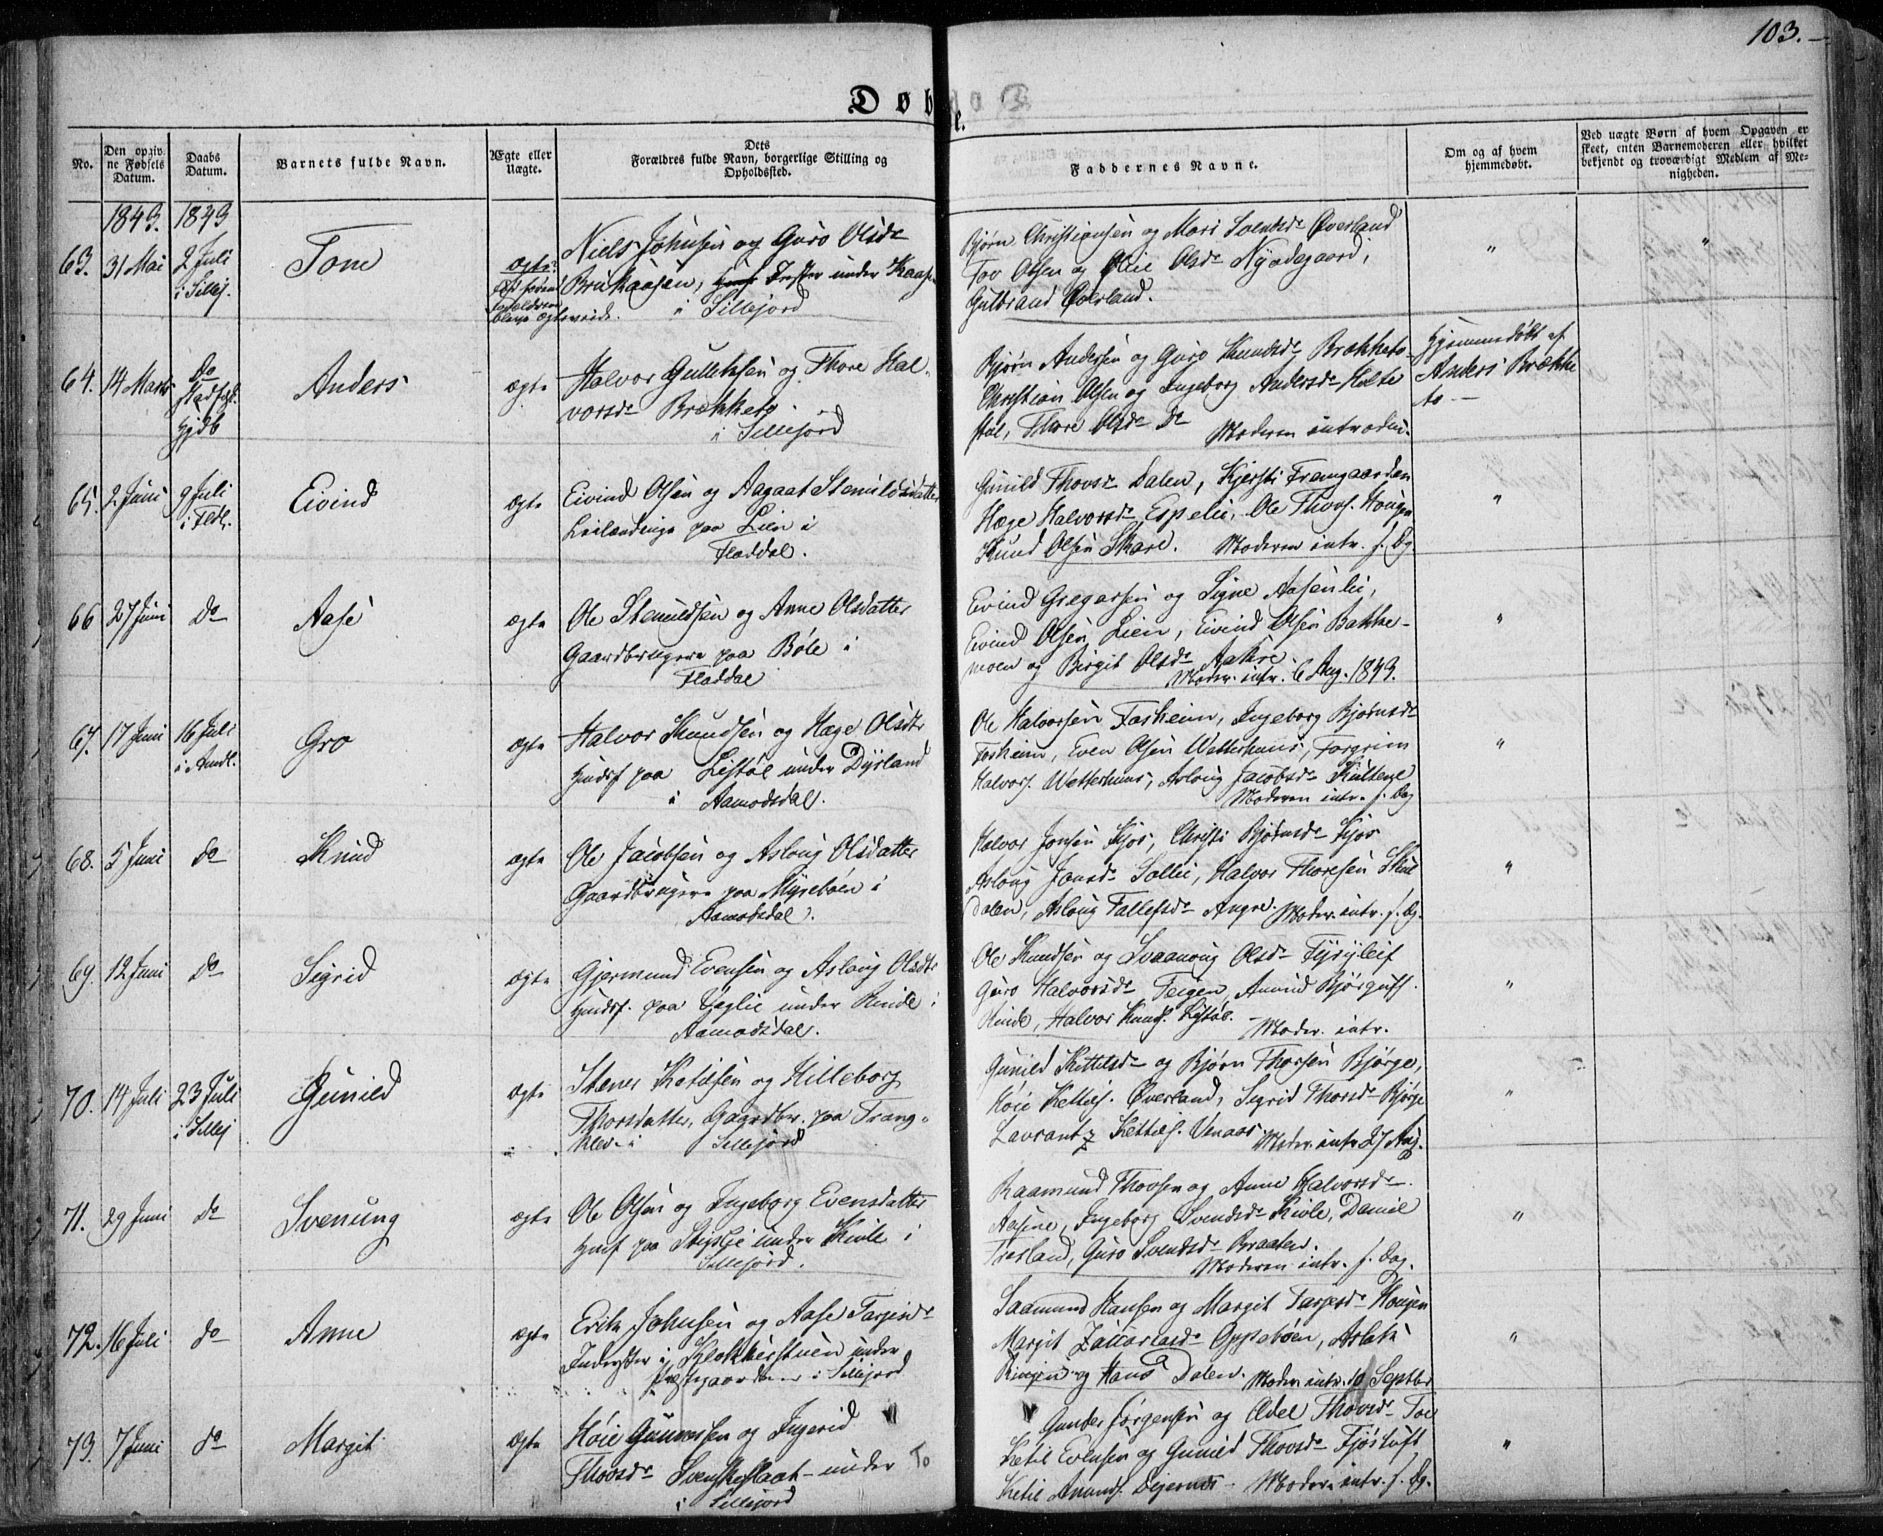 103.
Døbte.
No.
Den opgivne Fødsels Datum.
Daabs Datum.
Barnets fulde Navn.
Ægte eller Uægte.
Dets Forældres fulde Navn, borgerlige Stilling og Opholdssted.
Faddernes Navne.
Om og af hvem hjemmedøbt.
Ved uægte Børn af hvem Opgaven er skeet, enten Barnemoderen eller hvilket bekjendt og troværdigt Medlem af Menigheden.
1849. 1849
63. 31 Mai 2 Juli i Sillej. Tone ægte
Niels Johnsen og Guro Olsdr
under Kaase
i Sillejord
Bjørn Christiansen og Mari Svendsdr Øverland
Tov Olsen og Olsdr Nyodegaard,
Gulbrand Øverland.
64. 14 Marts do Stadfæst. Hjdb Anders ægte
Halvor Gulleksen og Thore Hal-
vorsdr Brækketo
i Sillejord
Bjørn Andersen og Guro Knudsdr Brækketo
Christian Olsen og Ingeborg Andersdr Holte
stul, Thore Olsdr do Moderen introdu.
Hjemmedøbt af
Anders Brække
to —
65. 2 Juni 9 Juli i Fldl. Eivind ægte
Eivind Olsen og Aagaat Stenuldsdatter
Leilændinge paa Lien i
Fladdal.
Gunild Thovsdr Dalen, Kjersti Framgaarden
Hæge Halvorsdr Espelie, Ole Thovs. Hougen
Knud Olsen Skare. Moderen intr. s. Dg
66 27 Juni do Aase ægte
Ole Stenuldsen og Anne Olsdatter
Gaardbrugere paa Bøle i
Fladdal
Eivind Gregarsen og Signe Aasenlie,
Eivind Olsen Lien, Eivind Olsen Bakke-
moen og Birgit Olsdr Aakre.
Moder. intr. 6 Aug. 1849.
67. 17 Juni 16 Juli i Amdl. Gro ægte
Halvor Knudsen og Hæge Olsdtr
Husf paa Listøl under Dyrland
i Aamodsdal.
Ole Halvorsen Fosheim, Ingeborg Bjørnsdr
Fosheim, Even Olsen Wetterhuus, Torgrim
Halvors. Wetterhuus, Asloug Jacobsdr
Moderen intr. s. Dag
68. 5 Juni do Knud ægte
Ole Jacobsen og Asloug Olsdatter
Gaardbrugere paa Myrebøen i
Aamodsdal.
Halvor Jonsen Kjos, Christi Bjørnsdr Kjos
Asloug Jonsdr Sollie, Halvor Thoresen
Dalen, Asloug Tallefsdr Moder. intr. s. Dg.
69. 12 Juni do Sigrid ægte
Gjermund Evensen og Aslaug Olsdtr
Husf. paa under Rinde i
Aamodsdal.
Ole Knudsen og Svaanaug Olsdr
Guro Halvorsdr Teigen Anund Bjørgulfs.
Rinde, Halvor Knuds. Listøl. Moder. intr.
70. 14 Juli 23 Juli i Sillej Gunild ægte
Stener Ketilsen og Hilleborg
Thorsdatter, Gaardbr. paa Trang-
klev i Sillejord
Gunild Kettilsdr og Bjørn Thorsen Bjørge,
Høie Kettils. Øverland, Sigrid Thorsdr Bjørge
Lavrantz Kettils. Venaas Moder. intr 27 Aug.
71. 29 Juni do Svenung ægte
Ole Olsen og Ingeborg Evensdatter
Husf paa under Kivle i
Sillejord.
Raamund Thovsen og Anne Halvorsdr
Aasene, Ingeborg Svendsdr Kivle, Daniel
Guro Svendsdr Braaten.
Moderen intr. s. Dag.
72. 16 Juli do Anne ægte
Erik Johnsen og Aase Tarjeidr
Inderster i Klokkerstuen under
Præstegaarden i Sillejord
Saamund Hansen og Margit Tarjeisdr Hougen
Margit Zakariasdr Oppebøen, Aslak
Ringen og Hans Dalen. Moder. intr. 10 Septbr
73. 7 Juni do Margit ægte
Høie Gunnersen og Ingerid
Thovsdr under To
i Sillejord
Gunder Jørgensen og Edel Thovsdr Toe
Ketil Evensen og Gunild Thovsdr Fjøstuft
Ketil Anunds. Moder. intr. s. Dg.